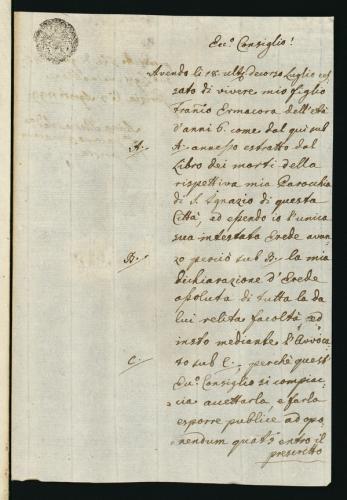 Ecc.º Consiglio!
Avendo li 18. ult.º decorso Luglio ces
sato di vivere mio figlio
Ermacora dell'Età
d'anni 6. come dal qui sub
A. annesso estratto dal
Libro dei morti della
rispettiva mia Parocchia
di S. Ignazio di questa
Città, ed essendo io l'unica
sua intestata Erede avan
zo perciò sub B. la mia
dichiarazione d'Erede
assoluta di tutta la da
lui relita facoltà, ed
insto mediante l'Avvoca
to sub C., perchè quest'
Ecc.º Consiglio si compiac
cia accettarla, e farla
esporre publice ad opo
nendum quat.s entro il
prescritto
A.
B.
C.